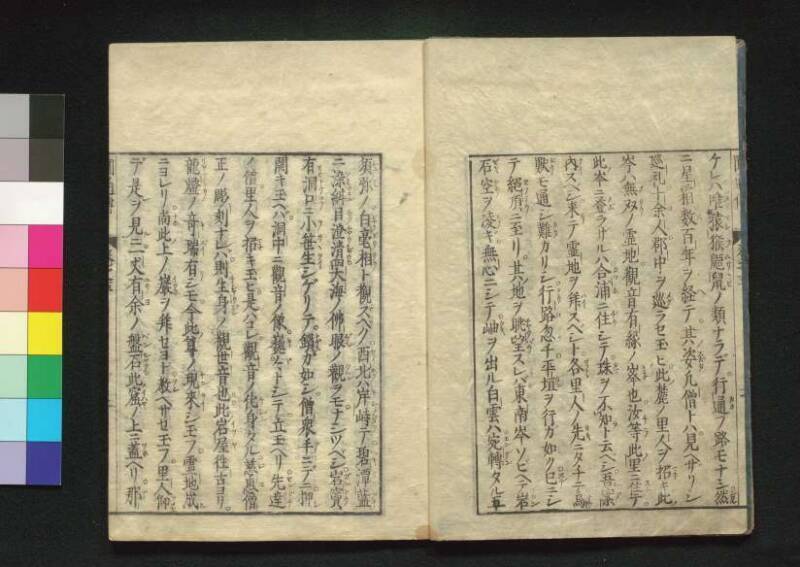 ケレハ陰猿猴鼯鼠ノ類ナラデ行通フ路モナシ然
ニ星相数百年ヲ経テ其姿凡僧トハ見ヘサリシ
巡礼十余人郡中ヲ巡ラセ玉ヒ此麓ノ里人ヲ招キ此
岑ハ無双ノ霊地観音有縁ノ峯也汝等此里ニ住テ
此岑ニ登ラサルハ合浦ニ住シテ珠ヲ不知ト云ヘシ吾
内スヘシ来テ霊地ヲ拝スベシト各里人ノ先ニタチ
獣モ通シ難カリシ行路忽チ平垣ヲ行カ如ク巳ニシ
テ絶頂ニ至リ其地ヲ眺望スレバ東南岑ソビヘテ岩
石空ヲ凌キ無心ニシテ岫ヲ出ル白雲ハ宛轉タル
須弥ノ白毫相ト観スベク西北ハ岸峙テ碧潭藍
ニ染紺目澄清四大海ノ佛眼ノ観ヲモナシツベシ岩窟
有洞口ニ小笹生シゲリテ鎖カ如シ僧衆手ニテ押
開キ玉ヘハ洞中ニ観音ノ像巍然トシテ立玉ヘリ先達
ノ僧里人ヲ招キ玉ヒ是ハコレ観音ノ化身タル
正ノ彫刻ナレハ則生身ノ観世音也此岩屋往古ヨリ
龍燈ノ奇瑞有シモ今此尊ノ現来シ玉フ霊地成
ニヨレリ尚此上ノ巌ヲ拝セヨト教ヘサセ玉フ里人仰
デ是ヲ見ニ丈有余ノ盤石此窟ノ上ニ蓋ヘリ那